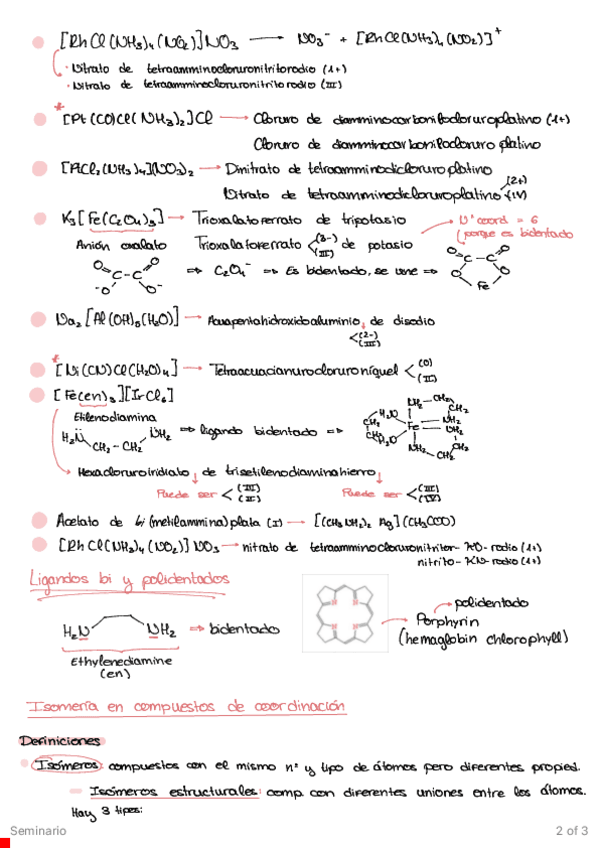 [RhCl(NH₃)₄(NO₂)]NO₃ ⟶ NO₃⁻ + [RhCl(NH₃)₄(NO₂)]⁺
· Nitrato de tetraamminocloruronitritorodio (1+)
· Nitrato de tetraamminocloruronitritorodio (III)
* [Pt(CO)Cl(NH₃)₂]Cl ⟶ Cloruro de diamminocarbonilocloruroplatino (1+)
Cloruro de diamminocarbonilocloruro platino
[PtCl₂(NH₃)₄](NO₃)₂ ⟶ Dinitrato de tetraamminodicloruroplatino
Nitrato de tetraamminodicloruroplatino < (2+) (IV)
K₃[Fe(C₂O₄)₃] → Trioxalatoferrato de tripotasio → Nº coord = 6
Anión oxalato Trioxalatoferrato < (3-) (III) de potasio (porque es bidentado
O O C - C ⁻O O⁻ ⇒ C₂O₄⁻ ⇒ Es bidentado, se une ⇒ O O C - C O O Fe
Na₂[Al(OH)₅(H₂O)] → Acuapentahidroxidoaluminio ↓ de disodio
< (2-) (III)
* [Ni(CN)Cl(H₂O)₄] → Tetraacuacianurocloruroníquel < (0) (II)
[Fe(en)₃][IrCl₆]
Etilenodiamina
H₂N CH₂-CH₂ NH₂ ⇒ ligando bidentado ⇒ Fe
Hexacloruroiridiato ↓ de trisetilenodiaminohierro ↓
Puede ser < (III) Puede ser < (III)
Acetato de bi(metilammina)plata (I) → [(CH₃NH₂)₂ Ag](CH₃COO)
[RhCl(NH₃)₄(NO₂)]NO₃ → nitrato de tetraamminocloruronitrito-κO-rodio (1+)
nitrito-κN-rodio (1+)
Ligandos bi y polidentados
H₂N NH₂ ⇒ bidentado
Ethylenediamine
(en)
→ polidentado
→ Porphyrin
(hemaglobin chlorophyll)
Isomería en compuestos de coordinación
Definiciones
Isómeros: compuestos con el mismo nº y tipo de átomos pero diferentes propied.
- Isómeros estructurales: comp. con diferentes uniones entre los átomos.
Hay 3 tipos:
Seminario
2 of 3